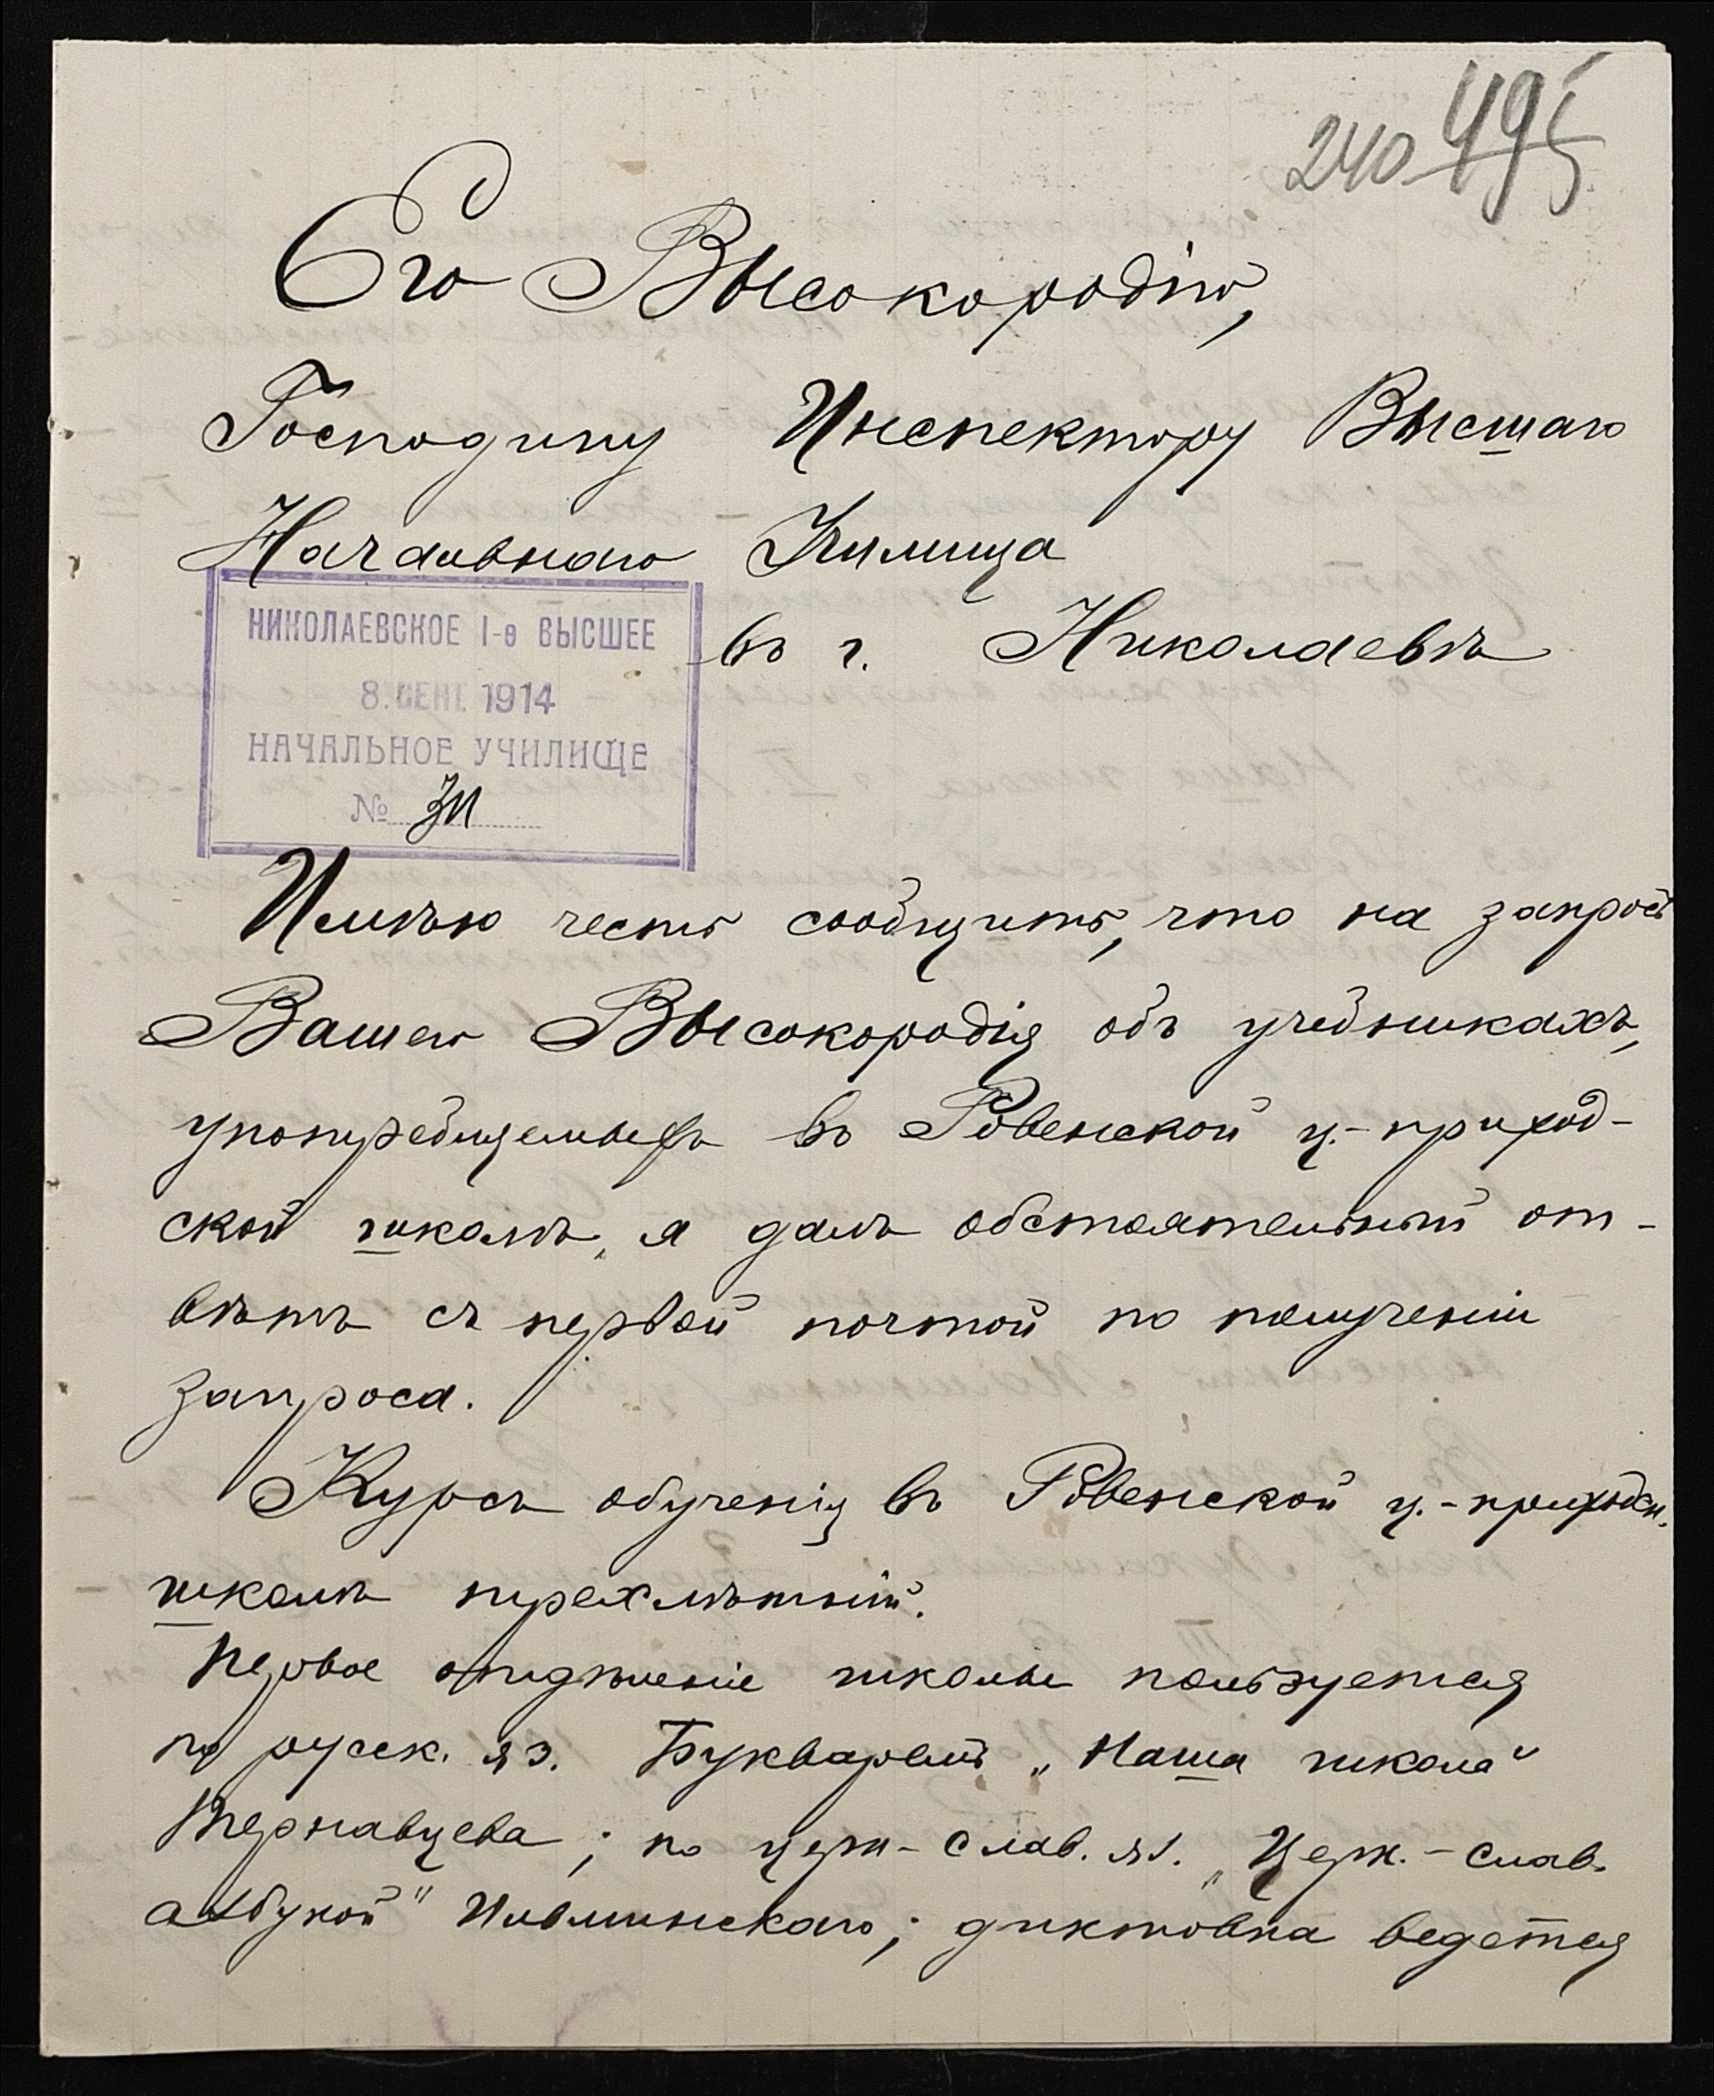 240 495
Его Высокородію,
Господину Инспектору Высшаго
Начальнаго Училища
въ г. Николаевѣ
НИКОЛАЕВСКОЕ 1-е ВЫСШЕЕ
8. СЕНТ. 1914
НАЧАЛЬНОЕ УЧИЛИЩЕ
№
Имѣю честь сообщить, что на запросъ
Вашего Высокородія объ учебникахъ,
употребляемыхъ въ Ровенской ц.-приход-
ской школѣ, я далъ обстоятельный от-
вѣтъ съ первой почтой по полученіи
запроса.
Курсъ обученія въ Ровенской ц.-приходск.
школѣ трехлѣтній.
Первое отдѣленіе школы пользуется
по русск. яз. Букваремъ „Наша школа"
Тернавцева; по церк-слав. яз. „Церк.-слав.
азбукой" Ильминскаго; диктовка ведется